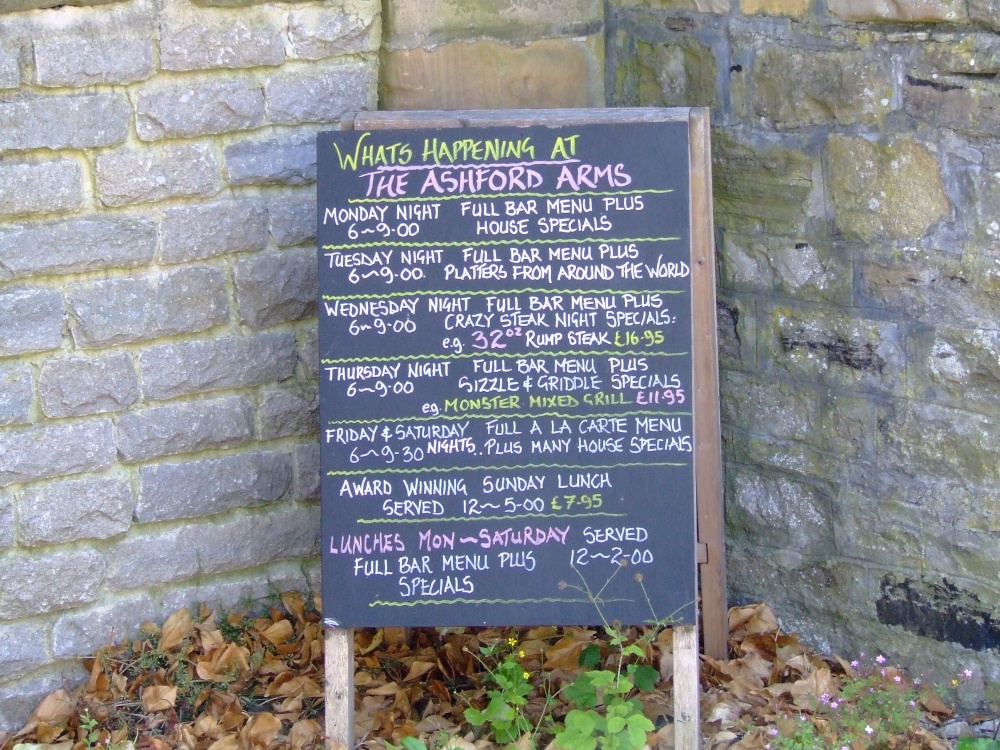 WHATS HAPPENING AT
THE ASHFORD ARMS
MONDAY NIGHT FULL BAR MENU PLUS
6~9.00 HOUSE SPECIALS
TUESDAY NIGHT FULL BAR MENU PLUS
6~9.00. PLATTERS FROM AROUND THE WORLD
WEDNESDAY NIGHT FULL BAR MENU PLUS
6~9.00 CRAZY STEAK NIGHT SPECIALS:
e.g. 32oz RUMP STEAK £16.95
THURSDAY NIGHT FULL BAR MENU PLUS
6~9.00 SIZZLE & GRIDDLE SPECIALS
e.g. MONSTER MIXED GRILL £11.95
FRIDAY & SATURDAY FULL A LA CARTE MENU
6~9.30 NIGHTS..PLUS MANY HOUSE SPECIALS
AWARD WINNING SUNDAY LUNCH
SERVED 12~5-00 £7.95
LUNCHES MON~SATURDAY SERVED
FULL BAR MENU PLUS 12~2-00
SPECIALS